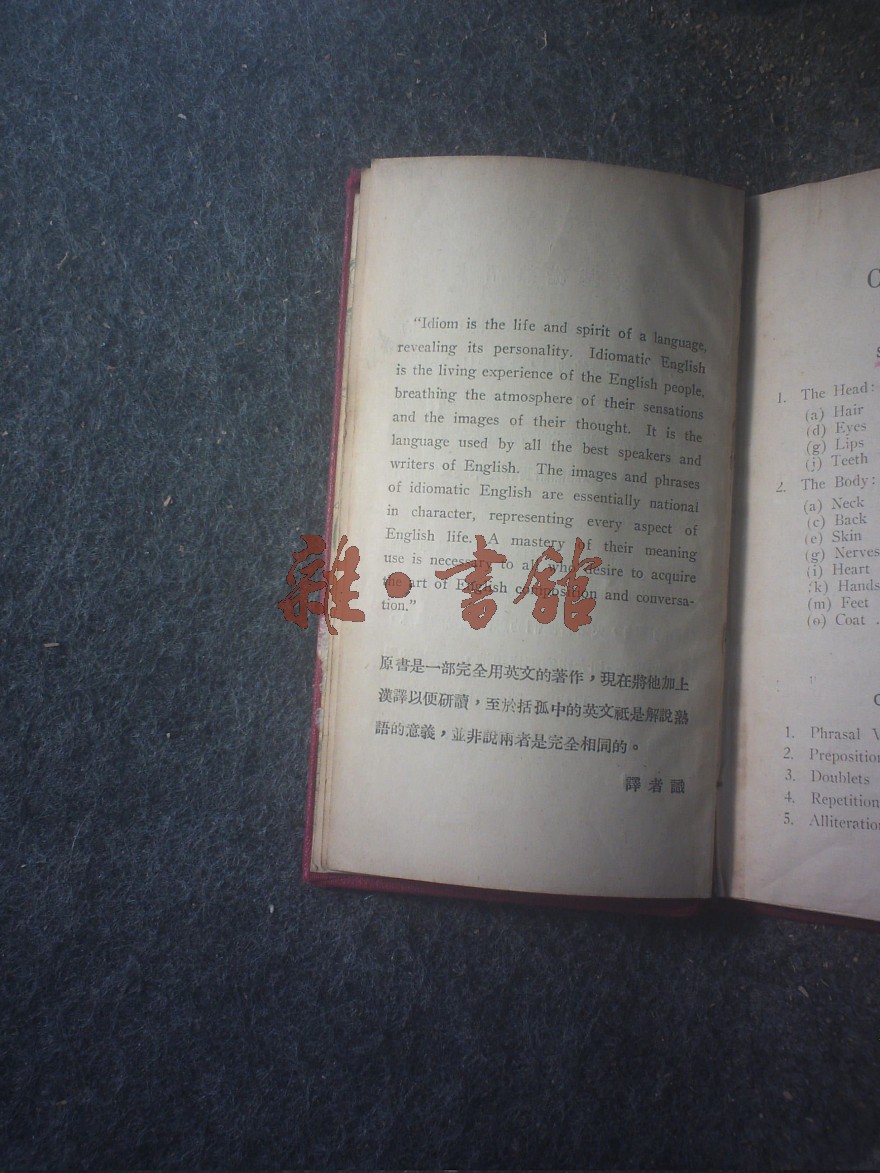 "Idiom is the life and spirit of a language,
revealing its personality. Idiomatic English
is the living experience of the English people,
breathing the atmosphere of their sensations
and the images of their thought. It is the
language used by all the best speakers and
writers of English. The images and phrases
of idiomatic English are essentially national
in character, representing every aspect of
English life. A mastery of their meaning
use is necessary to all who desire to acquire
the art of English composition and conversa-
tion."
原書是一部完全用英文的著作，現在將他加上
漢譯以便研讀，至於括孤中的英文祗是解說熟
語的意義，並非說兩者是完全相同的。
譯者識
雜·書館
C
S
1. The Head:
(a) Hair
(d) Eyes
(g) Lips
(j) Teeth
2. The Body:
(a) Neck
(c) Back
(e) Skin
(g) Nerves
(i) Heart
(k) Hands
(m) Feet
(o) Coat .
C
1. Phrasal V
2. Preposition
3. Doublets
4. Repetition
5. Alliteratio